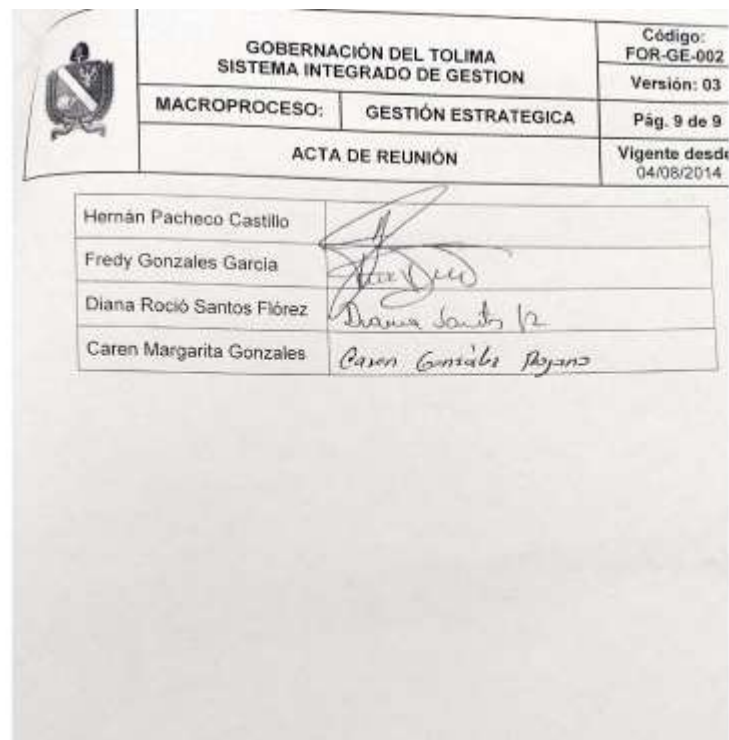 GOBERNACIÓN DEL TOLIMA
SISTEMA INTEGRADO DE GESTION
Código:
FOR-GE-002
Versión: 03
MACROPROCESO:
GESTIÓN ESTRATEGICA
Pág. 9 de 9
ACTA DE REUNIÓN
Vigente desde
04/08/2014
Hernán Pacheco Castillo
Fredy Gonzales Garcia
Diana Roció Santos Flórez
Diana Santos
Caren Margarita Gonzales
Caren González